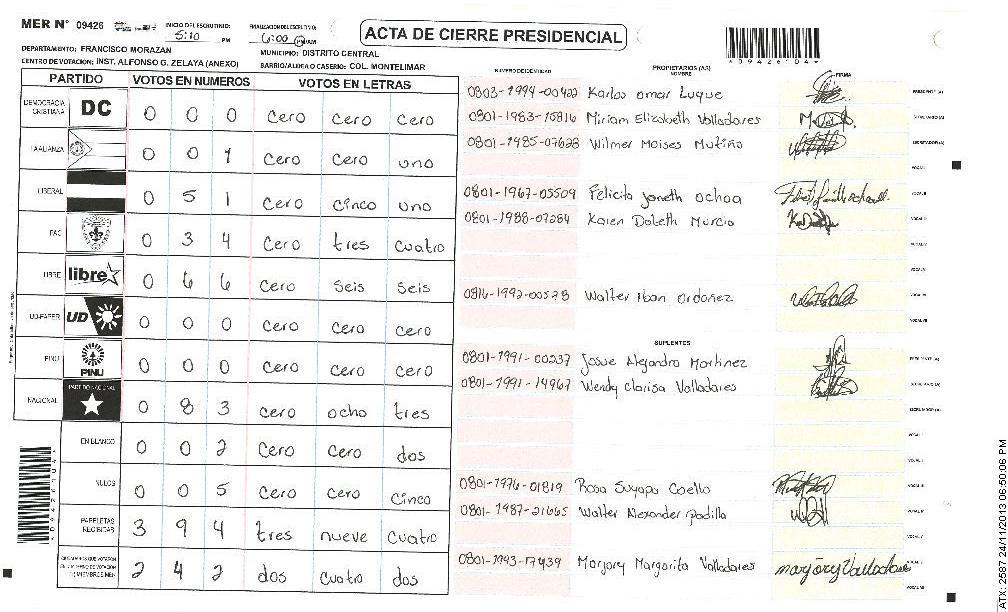 MER N° 09426
INICIO DEL ESCRUTINIO: 5:10 PM
FINALIZACION DEL ESCRUTINIO: 6:00 PM/AM
ACTA DE CIERRE PRESIDENCIAL
DEPARTAMENTO: FRANCISCO MORAZAN
MUNICIPIO: DISTRITO CENTRAL
CENTRO DE VOTACION: INST. ALFONSO G. ZELAYA (ANEXO)
BARRIO/ALDEA O CASERIO: COL. MONTELIMAR
*09426104*
PARTIDO VOTOS EN NUMEROS VOTOS EN LETRAS
DEMOCRACIA CRISTIANA DC 0 0 0 cero cero cero
LA ALIANZA 0 0 1 cero cero uno
LIBERAL 0 5 1 cero cinco uno
PAC 0 3 4 cero tres cuatro
LIBRE libre 0 6 6 cero seis seis
UD-FAPER UD 0 0 0 cero cero cero
PINU PINU 0 0 0 cero cero cero
NACIONAL PARTIDO NACIONAL 0 8 3 cero ocho tres
EN BLANCO 0 0 2 cero cero dos
NULOS 0 0 5 cero cero cinco
PAPELETAS RECIBIDAS 3 9 4 tres nueve cuatro
CIUDADANOS QUE VOTARON 2 4 2 dos cuatro dos
NUMERO DE IDENTIDAD PROPIETARIOS (AS) NOMBRE FIRMA
0803-1994-00422 Karlos omar Luque PRESIDENTE (A)
0801-1983-15816 Miriam Elizabeth Valladares SECRETARIO (A)
0801-1985-07628 Wilmer Moises Mutiño ESCRUTADOR (A)
VOCAL I
0801-1967-05509 Felicita Janeth Ochoa VOCAL II
0801-1988-07284 Karen Daleth Murcio VOCAL III
VOCAL IV
VOCAL V
0816-1992-00528 Walter Iban Ordoñez VOCAL VI
VOCAL VII
SUPLENTES
0801-1991-00237 Josue Alejandro Martinez PRESIDENTE (A)
0801-1991-14967 Wendy Clarisa Valladares SECRETARIO (A)
ESCRUTADOR (A)
VOCAL I
VOCAL II
0801-1976-01819 Rosa Suyapa Coello VOCAL III
0801-1987-21665 Walter Alexander Padilla VOCAL IV
VOCAL V
0801-1993-17439 Marjory Margarita Valladares marjory Valladares
VOCAL VII
ATX: 2587 24/11/2013 06:50:06 PM